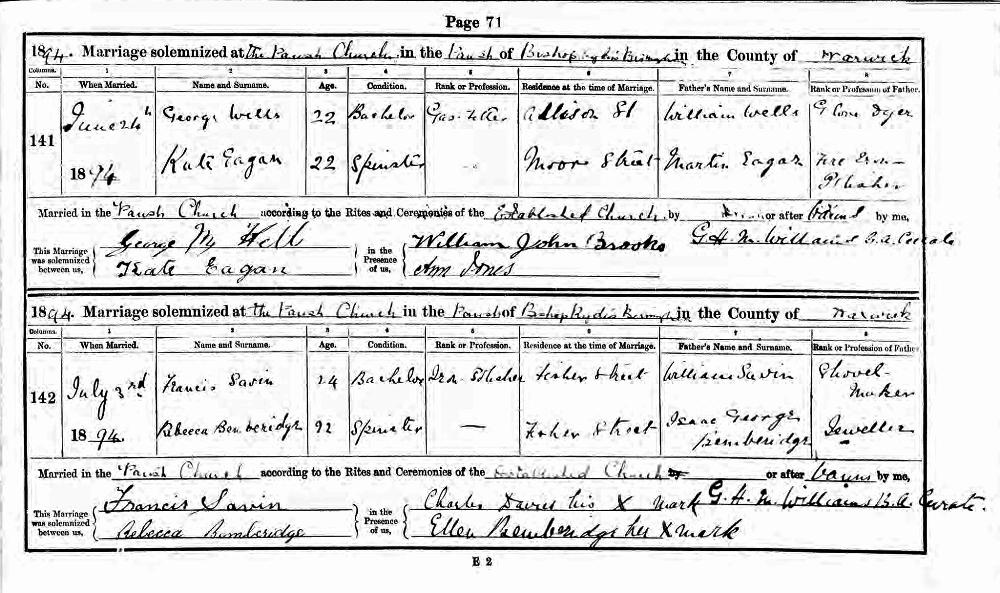 Page 71
1894. Marriage solemnized at the Parish Church in the Parish of Bishop Ryders Birmingham in the County of Warwick
Columns. 1 2 3 4 5 6 7 8
No. When Married. Name and Surname. Age. Condition. Rank or Profession. Residence at the time of Marriage. Father's Name and Surname. Rank or Profession of Father.
141 June 24th 1894 George Wells 22 Bachelor Gas-fitter Allison St William Wells Glove Dyer
Kate Eagan 22 Spinster Moore Street Martin Eagan Fire Iron-
Married in the Parish Church according to the Rites and Ceremonies of the Established Church by or after Banns by me,
George Wm Well William John Brooks G. H. M. Williams B.A. Curate
This Marriage was solemnized between us, in the Presence of us,
Kate Eagan Ann Jones
1894. Marriage solemnized at the Parish Church in the Parish of Bishop Ryders Birmingham in the County of Warwick
Columns. 1 2 3 4 5 6 7 8
No. When Married. Name and Surname. Age. Condition. Rank or Profession. Residence at the time of Marriage. Father's Name and Surname. Rank or Profession of Father.
142 July 3rd 1894. Francis Savin 24 Bachelor Iron Fisher Street William Savin Shovel-Maker
Rebecca Bemberidge 22 Spinster — Fisher Street Isaac George Bemberidge Jeweller
Married in the Parish Church according to the Rites and Ceremonies of the Established Church by or after Banns by me,
Francis Savin Charles Davies his X mark G. H. M. Williams B.A. Curate.
This Marriage was solemnized between us, in the Presence of us,
Rebecca Bemberidge Ellen Bemberidge her X mark
E 2